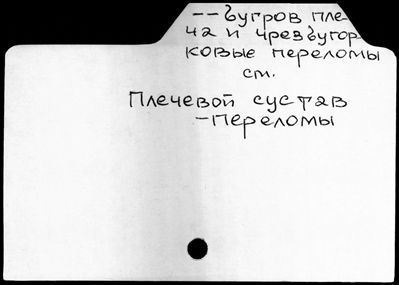 --бугров пле-
ча и чрезбугор-
ковые переломы
см.
Плечевой сустав
-Переломы